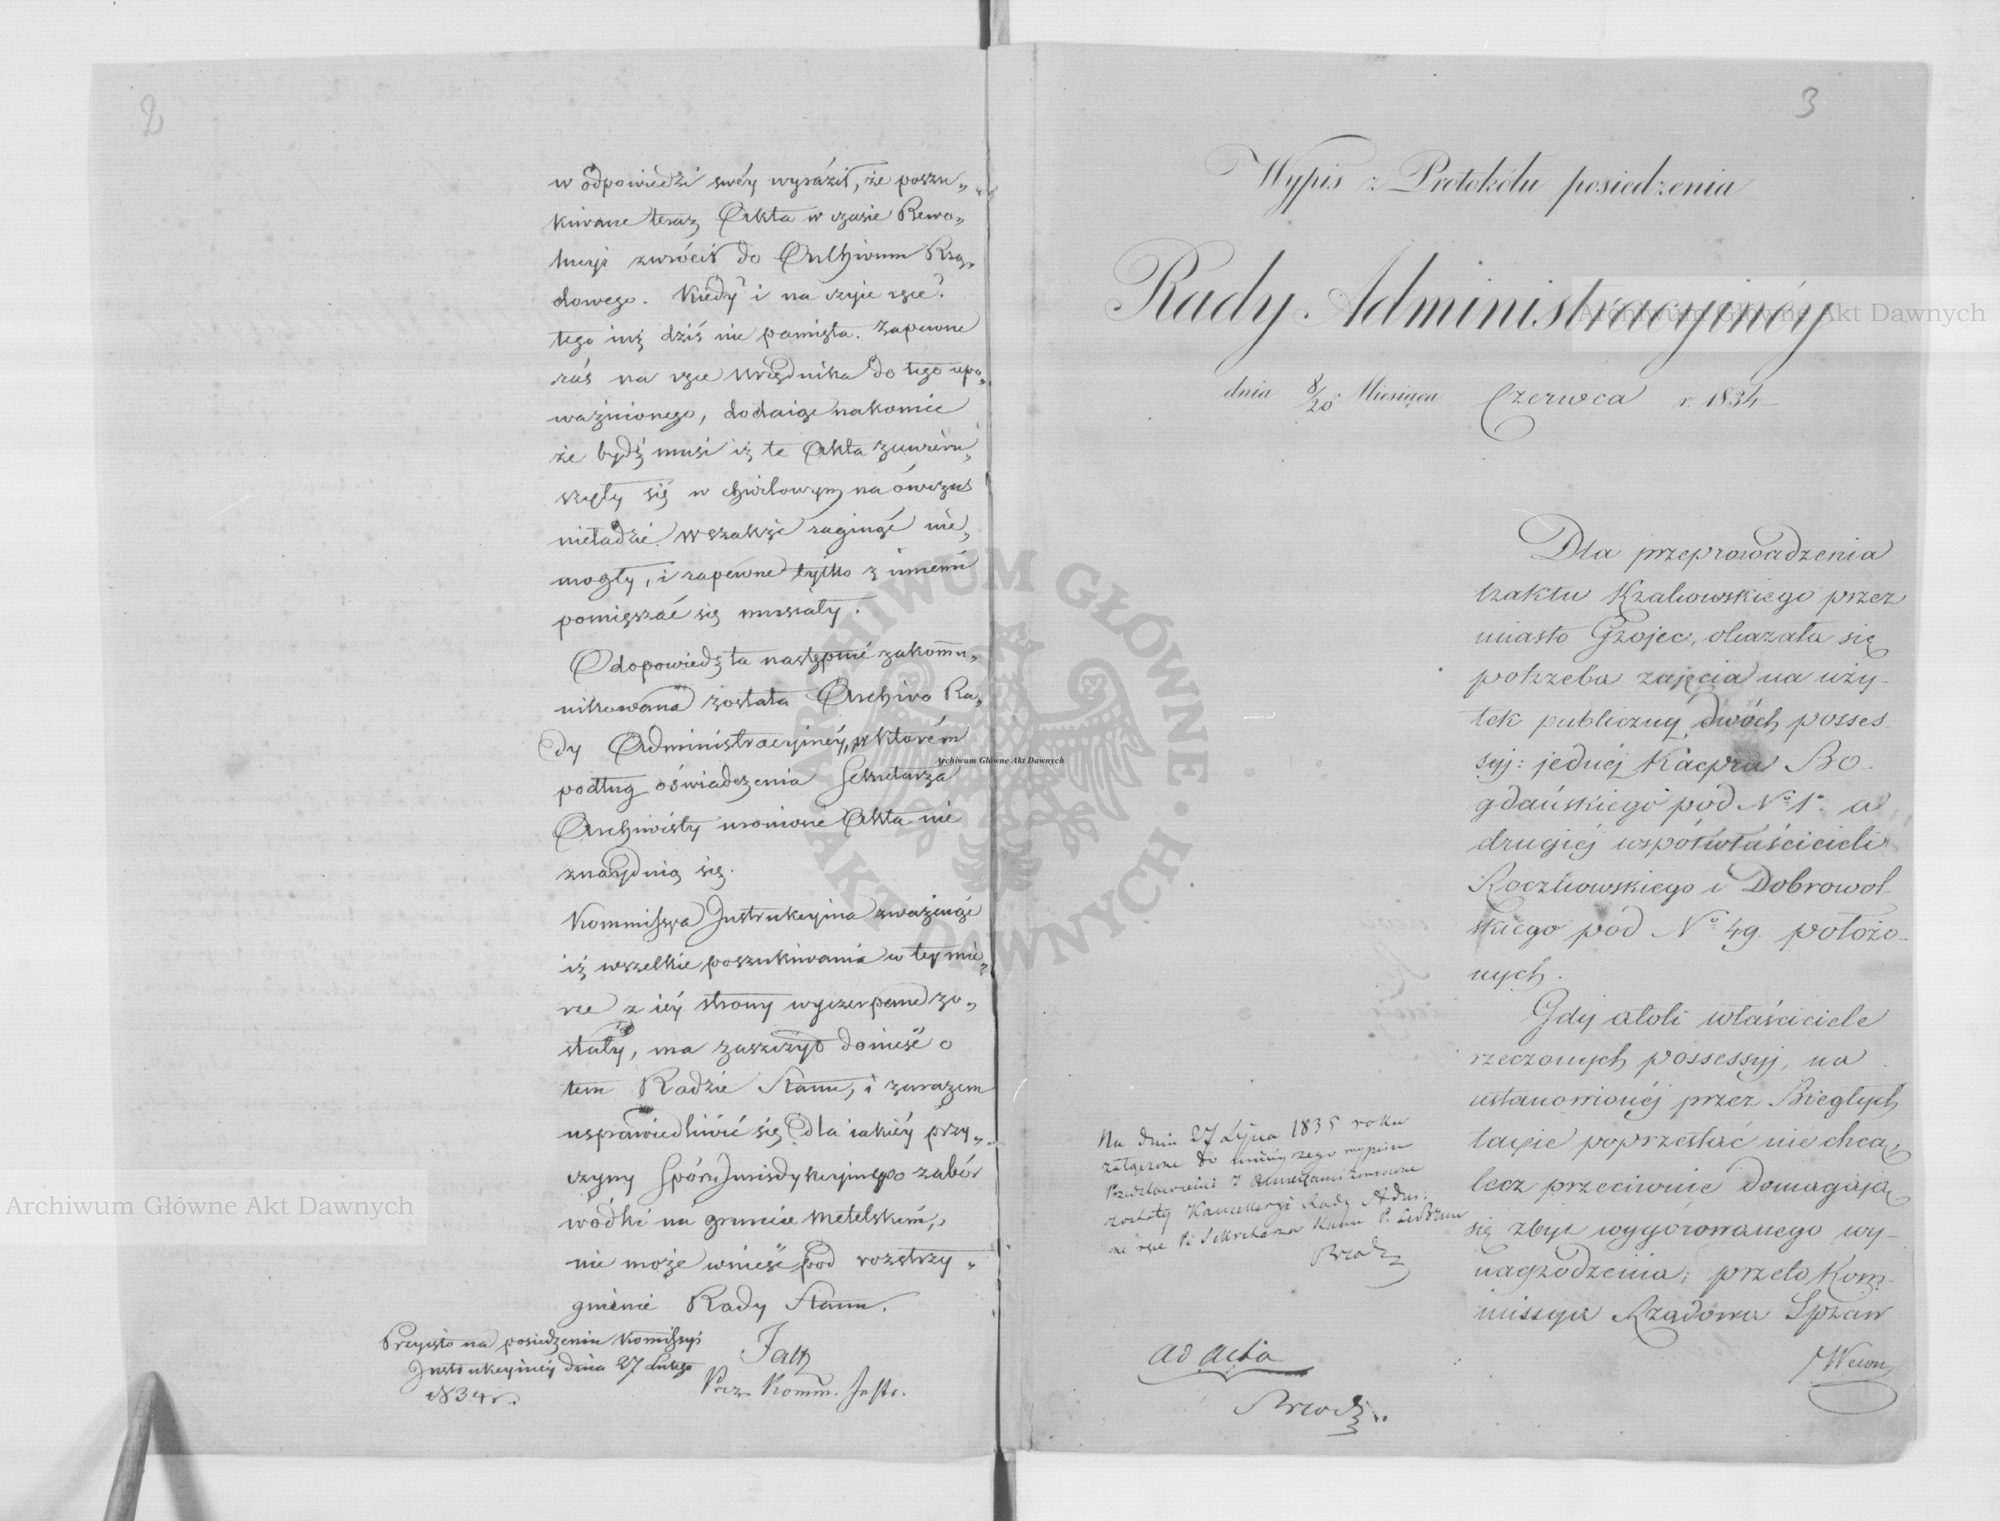 2
w odpowiedzi swéy wyraził, że poszu„
kiwane teraz Akta w czasie Rewo„
lucyi zwrócił do Archivum Rzą„
dowego. Kiedy i na czyie ręce?
tego iuż dziś nie pamięta. Zapewne
zaś na ręce Urzędnika do tego upo„
ważnionego, dodaiąc nakoniec
że bydź musi iż te Akta zawieru„
szyły się w chwilowym na ówczas
nieładzie. Wszakże zaginąć nie„
mogły, i zapewne tylko z innemi
pomięszać się musiały.
Odpowiedź ta następnie zakommu„
nikowana została Archivo Ra„
dy Administracyinéy, w którém
podług oświadczenia Sekretarza
Archiwisty uronione Akta nie
znayduią się.
Kommissya Instrukcyina zważaiąc
iż wszelkie poszukiwania w tey mie„
rze z iéy strony wyczerpane zo„
stały, ma zaszczyt donieść o
tem Radzie Stanu, i zarazem
usprawiedliwić się dla iakiéy przy„
czyny Spóru Jurisdykcyinego zabór
wódki na gruncie Metelskim,
nie może wnieść pod rozstrzy„
gnienie Rady Stanu.
Przyięto na posiedzeniu Kommissyi
Instrukcyinéy dnia 27 Lutego
1834 r.
Prez. Komm. Instr.
3
Wypis z Protokółu posiedzenia
Rady Administracyinéy
dnia 8/20 Miesiąca Czerwca r. 1834
Dla przeprowadzenia
traktu Krakowskiego przez
miasto Grojec, okazała się
potrzeba zajęcia na uży-
tek publiczny dwóch posses
syj: jednéj Kacpra Bo-
gdańskiego pod No 1o a
drugiéj współwłaścicieli
Roczkowskiego i Dobrowol-
skiego pod No 49. położo-
nych.
Gdy atoli właściciele
rzeczonych possessyj, na
ustanowionéj przez Biegłych
taxie poprzestać nie chcą,
lecz przeciwnie domagają
się zbyt wygórowanego wy-
nagrodzenia; przeto Kom-
missya Rządowa Spraw
Wewn
Na dniu 27 Lipca 1835 roku
załączone do niniejszego wypisu
Przedstawienie z Annexami zwrócone
zostały Kancellaryi Rady Adm:
na ręce P. Sekretarza Kanc P.
ad acta
Archiwum Główne Akt Dawnych
Archiwum Główne Akt Dawnych
Archiwum Główne Akt Dawnych
ARCHIWUM GŁÓWNE • AKT DAWNYCH •